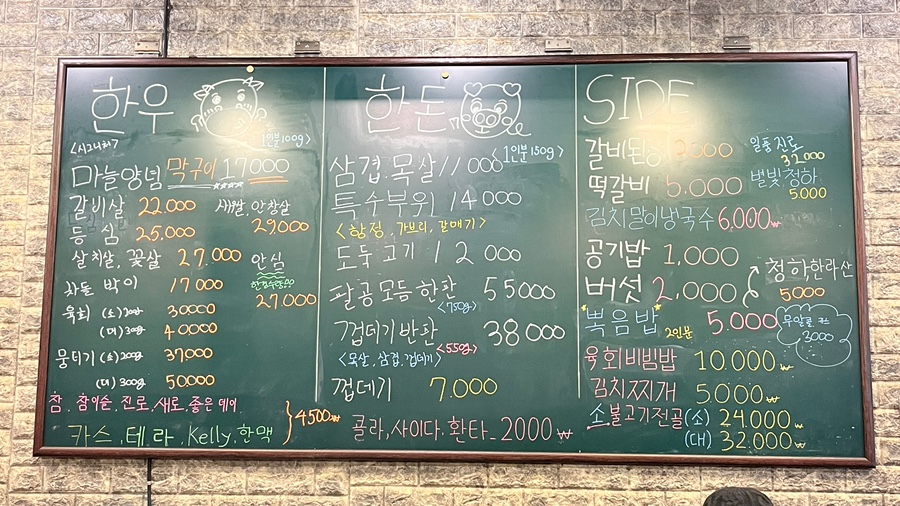 한우
1인분 100g>
<시그니처>
마늘양념 막구이 17000
갈비살 22.000
새우살, 안창살
29000
등심 25.000
살치살, 꽃살 27.000
안심
27.000
차돌박이 17000
육회 (소) 200g 30000
(대) 300g 40000
뭉티기 (소) 200g 37,000
(대) 300g 50000
참, 참이슬, 진로, 새로, 좋은데이
카스, 테라, Kelly, 한맥
4500₩
한돈
<1인분 150g>
삼겹.목살 11000
특수부위 14000
<항정, 가브리, 갈매기>
도둑고기 12000
팔공모듬한판 55000
<750g>
껍데기반판 38000
<550g>
<목살, 삼겹, 껍데기>
껍데기 7.000
콜라,사이다.환타_2000₩
SIDE
갈비된
일품진로
32000
떡갈비 5.000
별빛청하
5.000
김치말이냉국수 6,000₩
공기밥 1,000
청하 한라산
5000
버섯 2,000
볶음밥 2인분 5.000
3000
육회비빔밥 10.000₩
김치찌개 5000₩
소.불고기전골 (소) 24.000₩
(대) 32.000₩